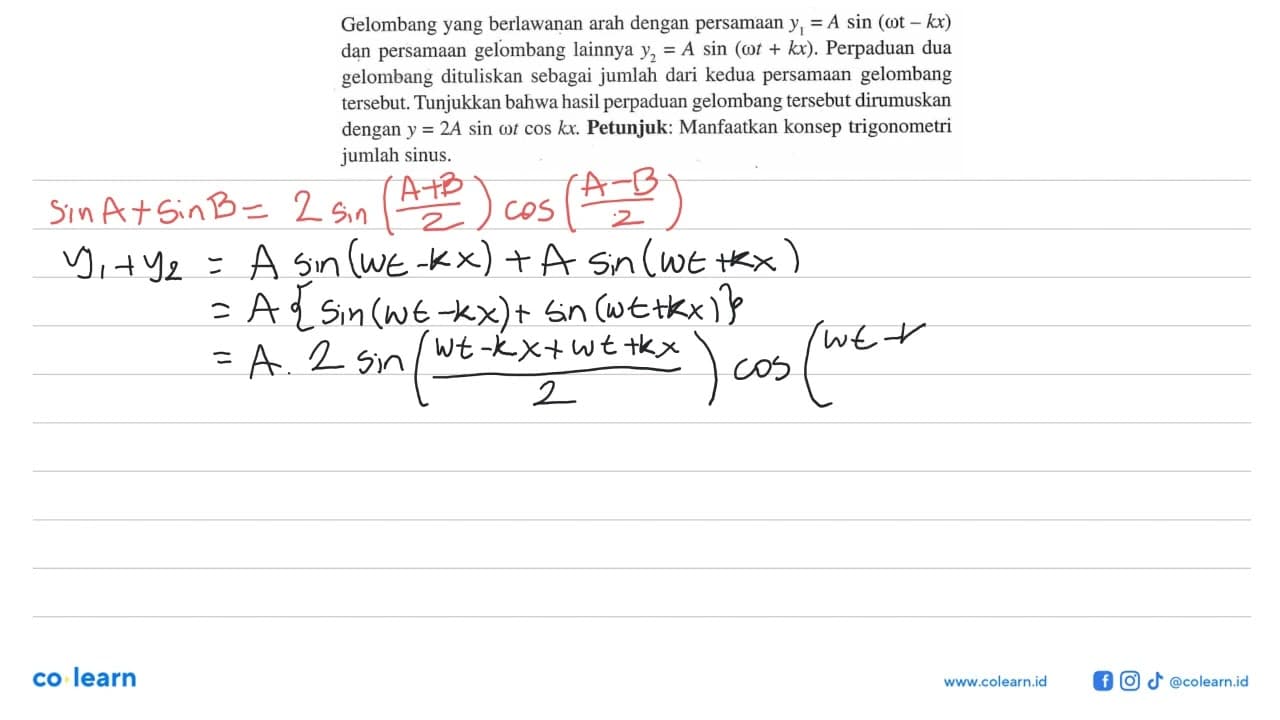 Gelombang yang berlawanan arah dengan persamaan y₁ = A sin (ωt – kx)
dan persamaan gelombang lainnya y₂ = A sin (ωt + kx). Perpaduan dua
gelombang dituliskan sebagai jumlah dari kedua persamaan gelombang
tersebut. Tunjukkan bahwa hasil perpaduan gelombang tersebut dirumuskan
dengan y = 2A sin ωt cos kx. Petunjuk: Manfaatkan konsep trigonometri
jumlah sinus.
sin A + sin B = 2 sin ((A+B)/2) cos ((A-B)/2)
y₁ + y₂ = A sin(ωt - kx) + A sin(ωt + kx)
= A {sin(ωt - kx) + sin(ωt + kx)}
= A. 2 sin ((ωt - kx + ωt + kx)/2) cos (ωt +
co learn
www.colearn.id
@colearn.id